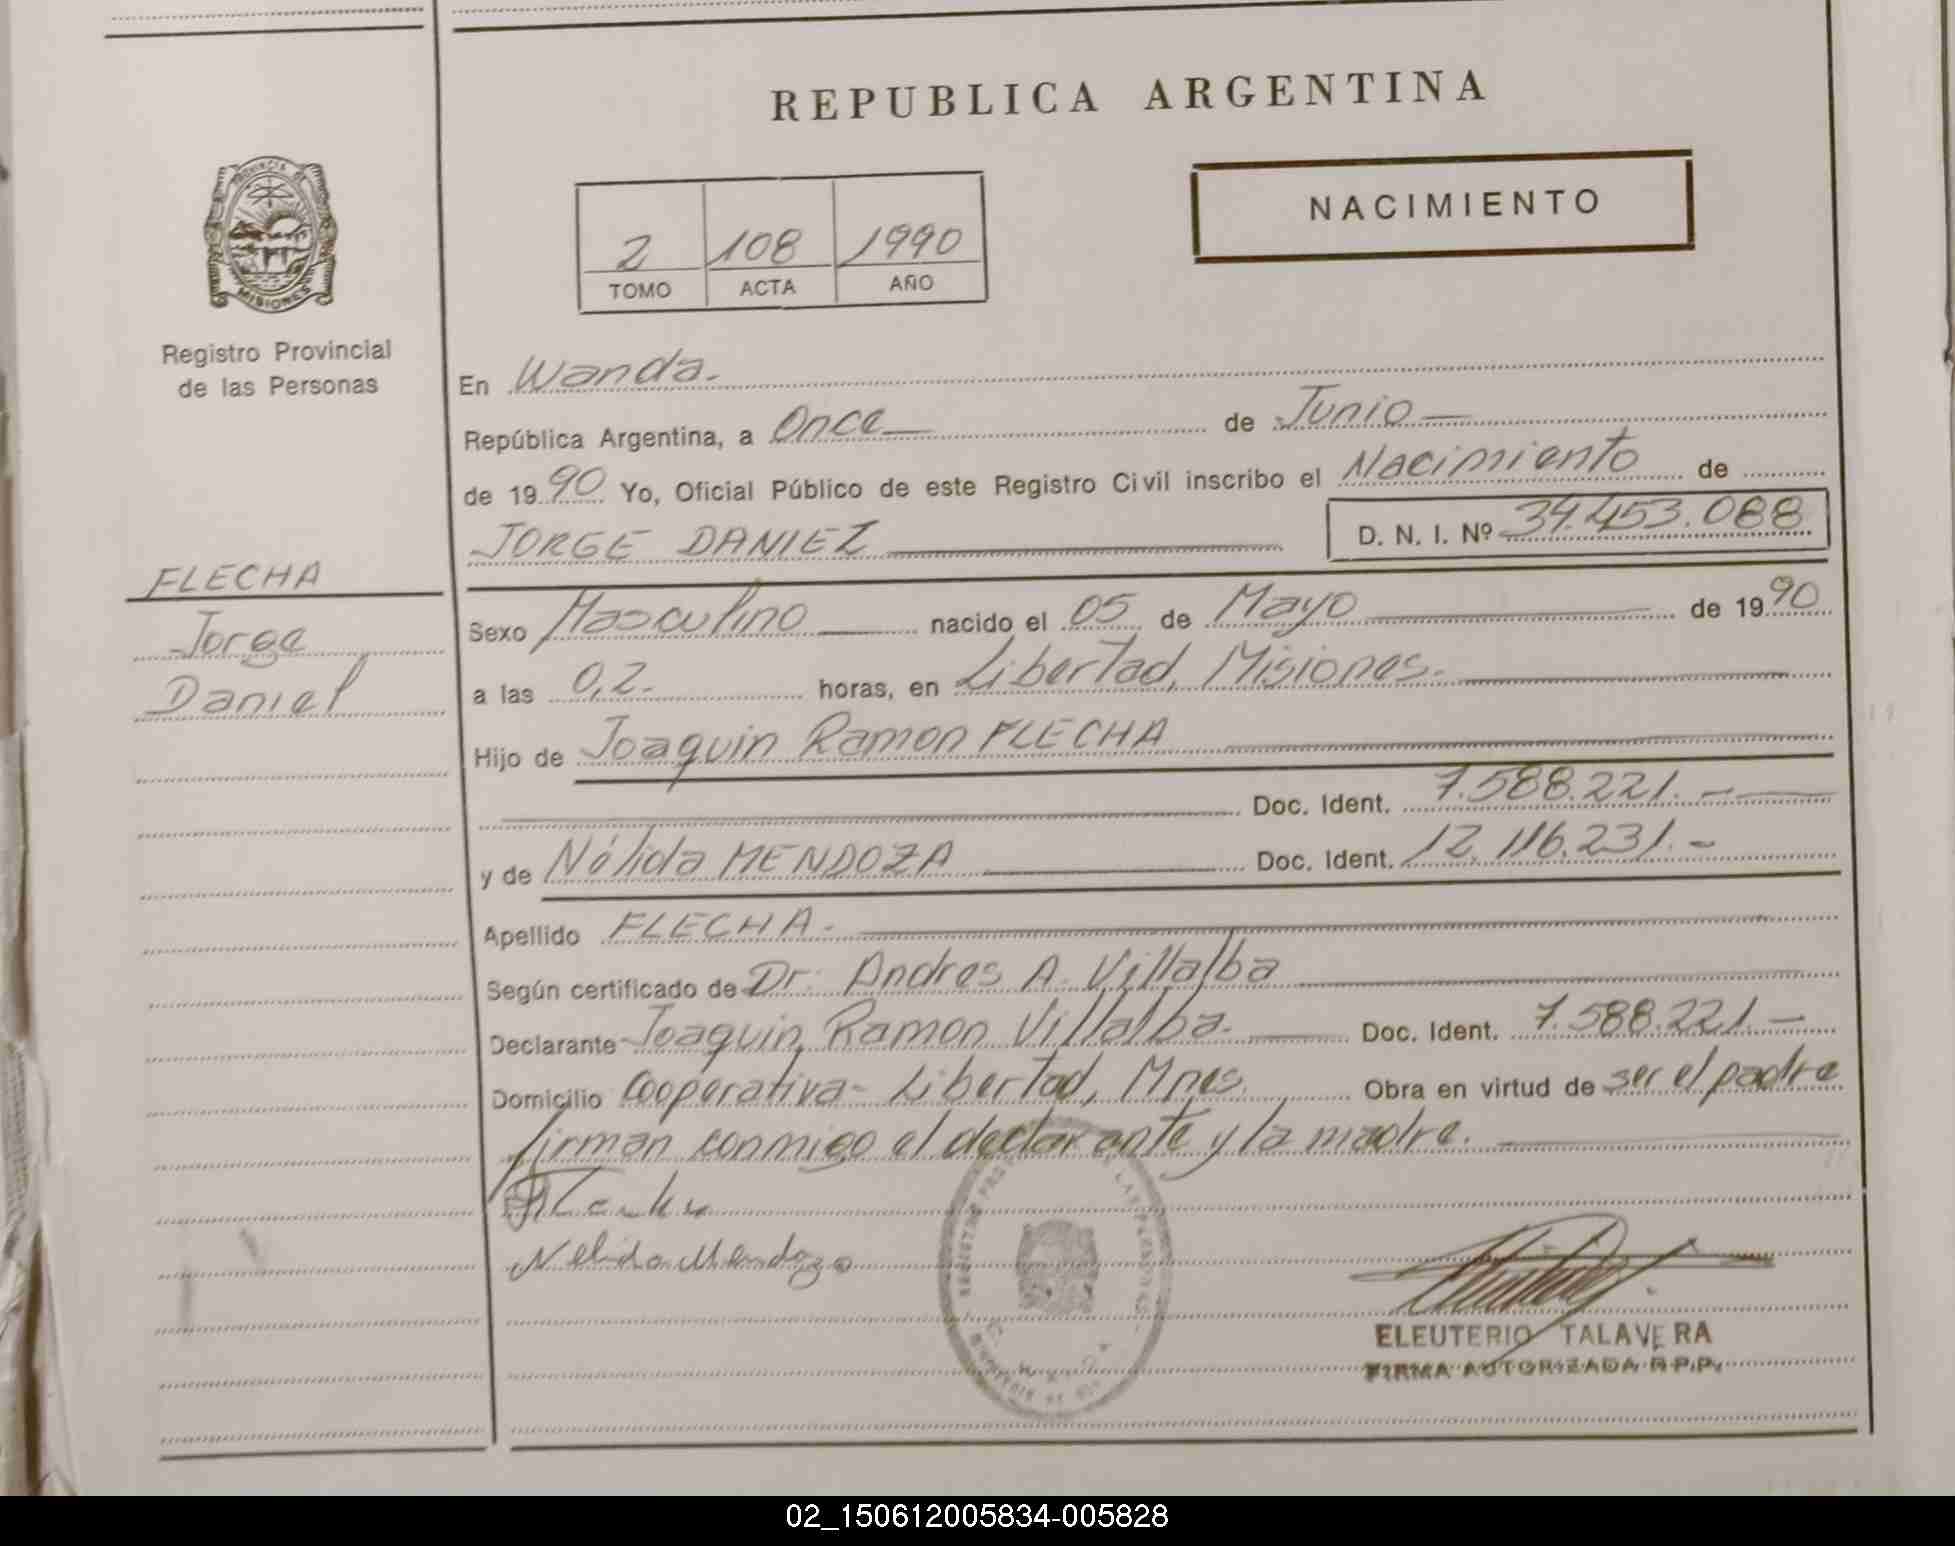 REPUBLICA ARGENTINA
NACIMIENTO
2 108 1990
TOMO ACTA AÑO
PROVINCIA DE
MISIONES
Registro Provincial
de las Personas
En Wanda.
República Argentina, a Once de Junio
de 1990 Yo, Oficial Público de este Registro Civil inscribo el Nacimiento de
JORGE DANIEL D. N. I. Nº 34.453.088
FLECHA
Jorge
Daniel
Sexo Masculino nacido el 05 de Mayo de 1990
a las 0,2. horas, en Libertad, Misiones.
Hijo de Joaquin Ramon FLECHA
Doc. Ident. 7.588.221.-
y de Nélida MENDOZA Doc. Ident. 12.116.231.-
Apellido FLECHA.
Según certificado de Dr. Andres A. Villalba
Declarante Joaquin Ramon Villalba. Doc. Ident. 7.588.221.-
Domicilio Cooperativa- Libertad, Mnes. Obra en virtud de ser el padre
firman conmigo el declarante y la madre.
Nelida Mendoza
ELEUTERIO TALAVERA
FIRMA AUTORIZADA R.P.P.
02_150612005834-005828